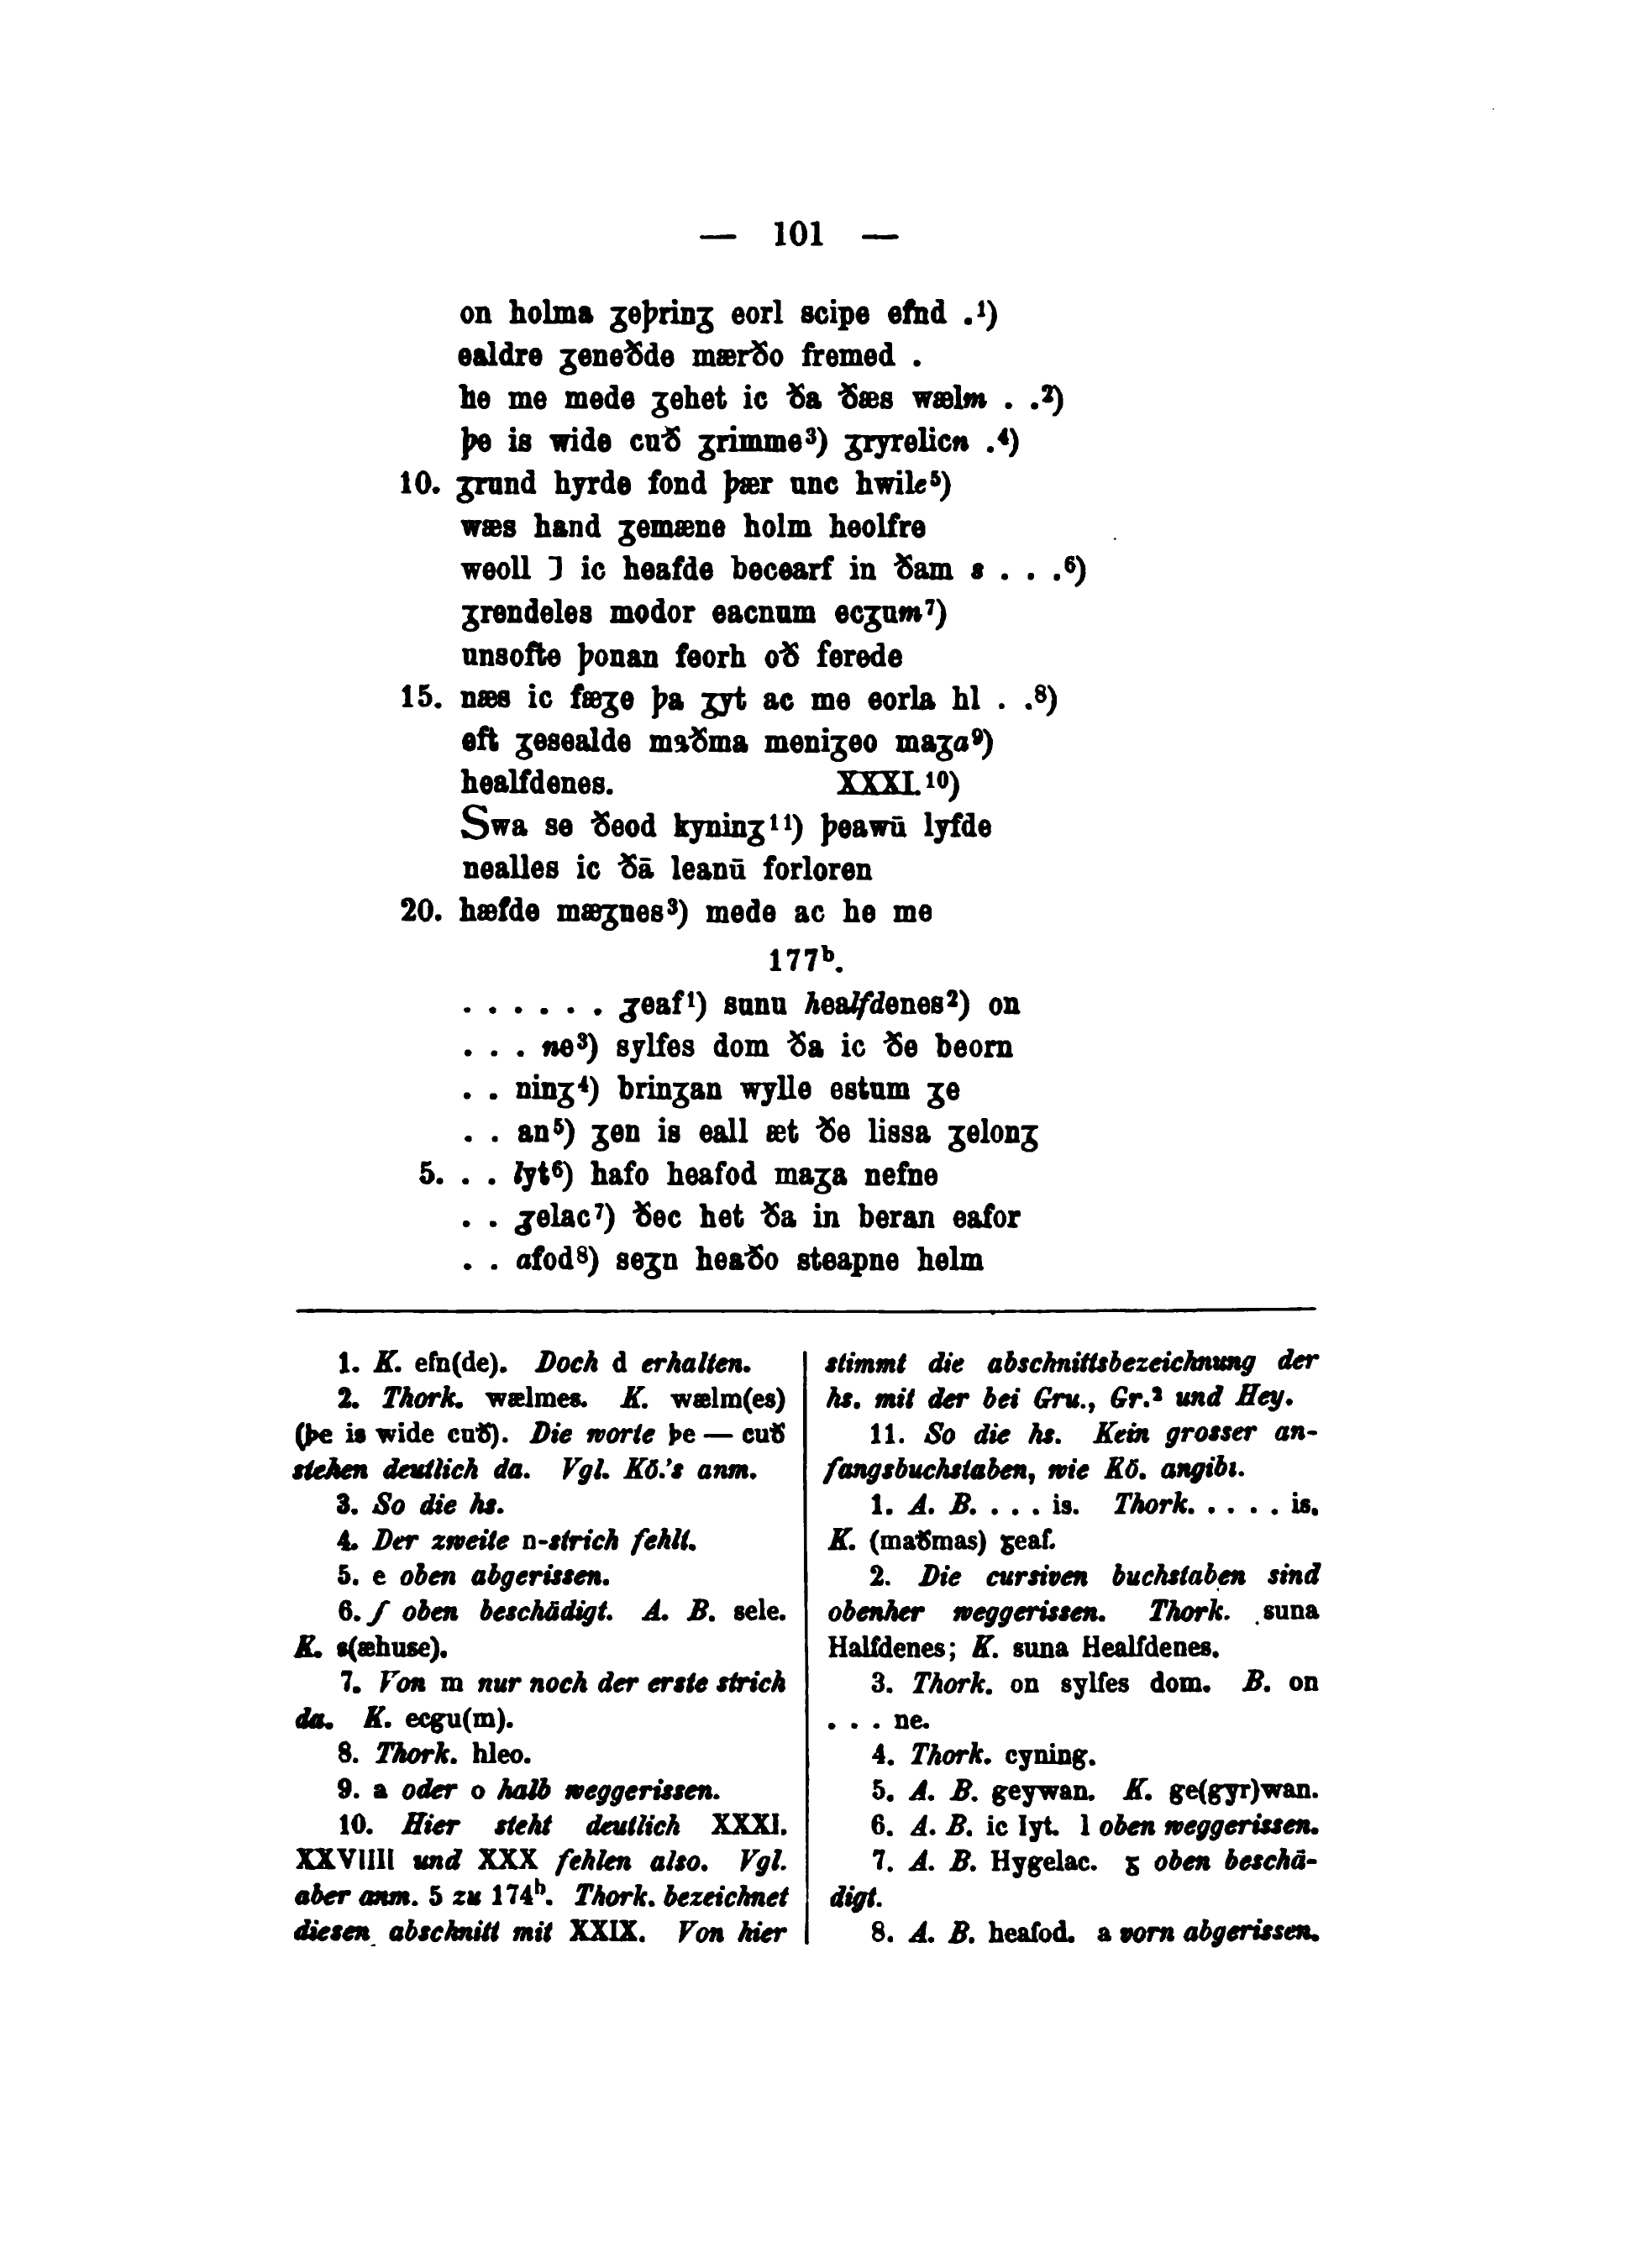 — 101 —
on holma ʒeþrinʒ eorl scipe efnd .¹)
ealdre ʒeneðde mærðo fremed .
he me mede ʒehet ic ða ðæs wælm . .²)
þe is wide cuð ʒrimme³) ʒryrelicn .⁴)
10. ʒrund hyrde fond þær unc hwile⁵)
wæs hand ʒemæne holm heolfre
weoll ⁊ ic heafde becearf in ðam s . . .⁶)
ʒrendeles modor eacnum ecʒum⁷)
unsofte þonan feorh oð ferede
15. næs ic fæʒe þa ʒyt ac me eorla hl . .⁸)
eft ʒesealde maðma meniʒeo maʒa⁹)
healfdenes. XXXI.¹⁰)
Swa se ðeod kyninʒ¹¹) þeawū lyfde
nealles ic ðā leanū forloren
20. hæfde mæʒnes³) mede ac he me
177ᵇ.
. . . . . . ʒeaf¹) sunu healfdenes²) on
. . . ne³) sylfes dom ða ic ðe beorn
. . ninʒ⁴) brinʒan wylle estum ʒe
. . an⁵) ʒen is eall æt ðe lissa ʒelonʒ
5. . . lyt⁶) hafo heafod maʒa nefne
. . ʒelac⁷) ðec het ða in beran eafor
. . afod⁸) seʒn heaðo steapne helm
1. K. efn(de). Doch d erhalten.
2. Thork. wælmes. K. wælm(es)
(þe is wide cuð). Die worte þe — cuð
stehen deutlich da. Vgl. Kö.'s anm.
3. So die hs.
4. Der zweite n-strich fehlt.
5. e oben abgerissen.
6. ſ oben beschädigt. A. B. sele.
K. s(æhuse).
7. Von m nur noch der erste strich
da. K. ecgu(m).
8. Thork. hleo.
9. a oder o halb weggerissen.
10. Hier steht deutlich XXXI.
XXVIIII und XXX fehlen also. Vgl.
aber anm. 5 zu 174ᵇ. Thork. bezeichnet
diesen abschnitt mit XXIX. Von hier
stimmt die abschnittsbezeichnung der
hs. mit der bei Gru., Gr.² und Hey.
11. So die hs. Kein grosser an-
fangsbuchstaben, wie Kö. angibt.
1. A. B. . . . is. Thork. . . . . is.
K. (maðmas) ʒeaf.
2. Die cursiven buchstaben sind
obenher weggerissen. Thork. suna
Halfdenes; K. suna Healfdenes.
3. Thork. on sylfes dom. B. on
. . . ne.
4. Thork. cyning.
5. A. B. geywan. K. ge(gyr)wan.
6. A. B. ic lyt. l oben weggerissen.
7. A. B. Hygelac. ʒ oben beschä-
digt.
8. A. B. heafod. a vorn abgerissen.